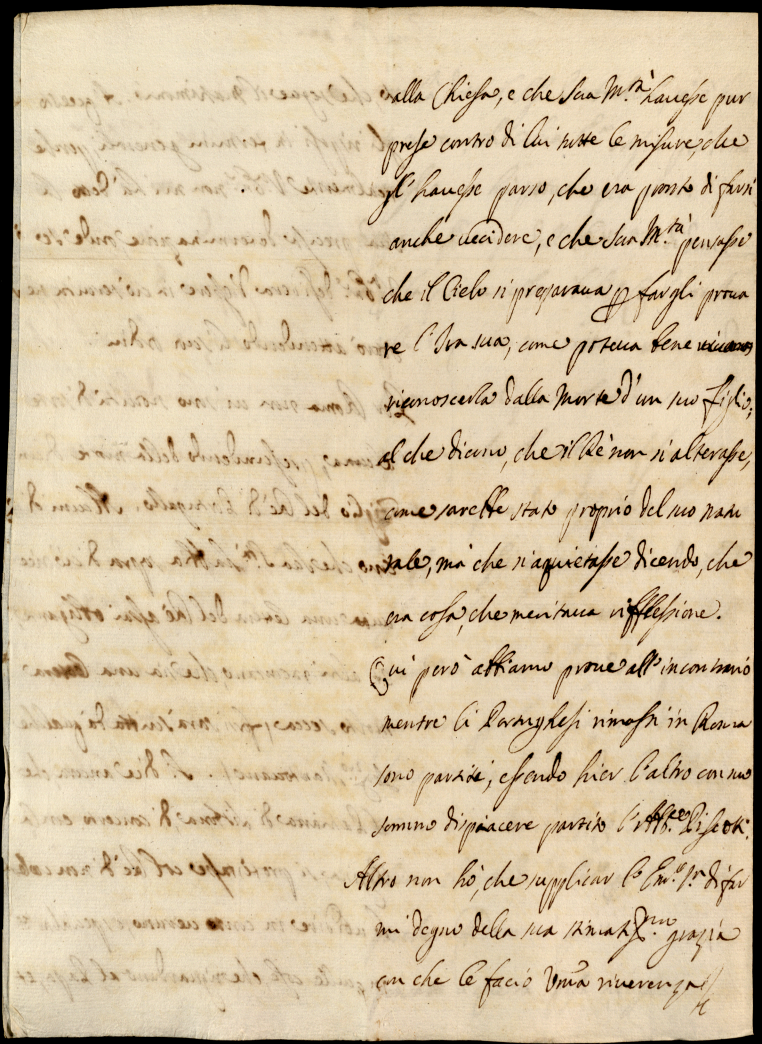 alla Chiesa, e che Sua M.tà hauesse pur
prese contro di lui tutte le misure, che
gl'hauesse parso, che era pronto di farsi
anche uccidere, e che Sua M.tà pensasse
che il Cielo si preparaua p fargli proua
re l'Ira sua, come poteua bene
riconoscerla dalla Morte d'un suo figlio;
al che dicono, che il Rè non si alterasse,
come sarebbe stato proprio del suo natu
rale, mà che si aquietasse dicendo, che
era cosa, che meritaua riflessione.
Qui però abbiamo proue all'incontrario
mentre li Portughesi rimasti in Roma
sono partiti, essendo hier l'altro con suo
sommo dispiacere partito l'Abb.e
Altro non hò, che supplicar l'Em.a S.a di far
mi degno della sua stimatis.ma grazia
con che le facio Um.a riuerenza